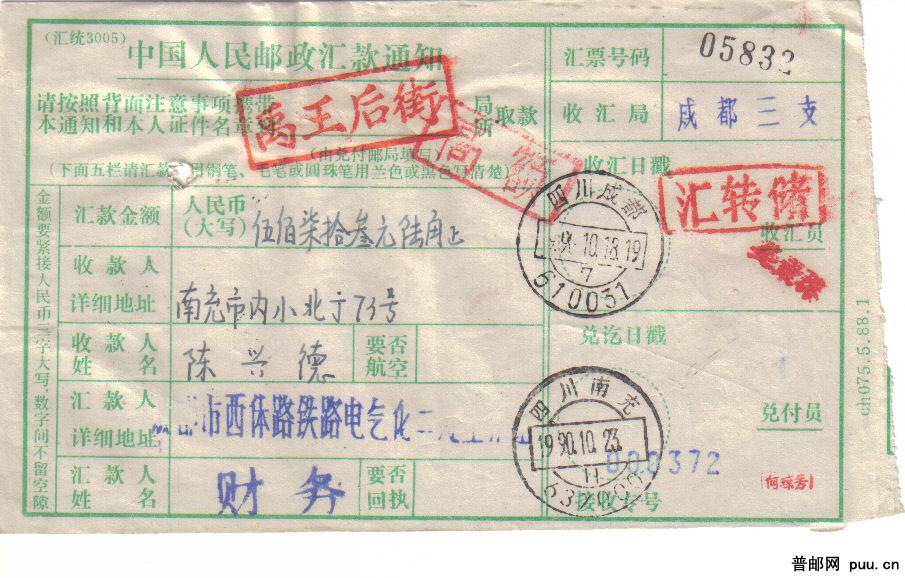 (汇统3005)
中国人民邮政汇款通知
汇票号码
05832
请按照背面注意事项携带
本通知和本人证件名章到
局
所
取款
禹王后街
收汇局
成都三支
(由兑付邮局填写)
(下面五栏请汇款
用钢笔、毛笔或圆珠笔用兰色或黑色写清楚)
收汇日戳
汇转储
收汇员
汇款金额
人民币
(大写)
伍佰柒拾叁元陆角正
四川成都
10.18.19
7
610031
收款人
详细地址
南充市内小北于73号
收款人
姓名
陈兴德
要否
航空
兑讫日戳
汇款人
详细地址
市西体路铁路电气化二
四川南充
1990.10.23
兑付员
000372
何琼秀
接收专号
汇款人
姓名
财务
要否
回执
金额要紧接人民币三字大写,数字间不留空隙
ch075.5.88.1
普邮网 puu.cn